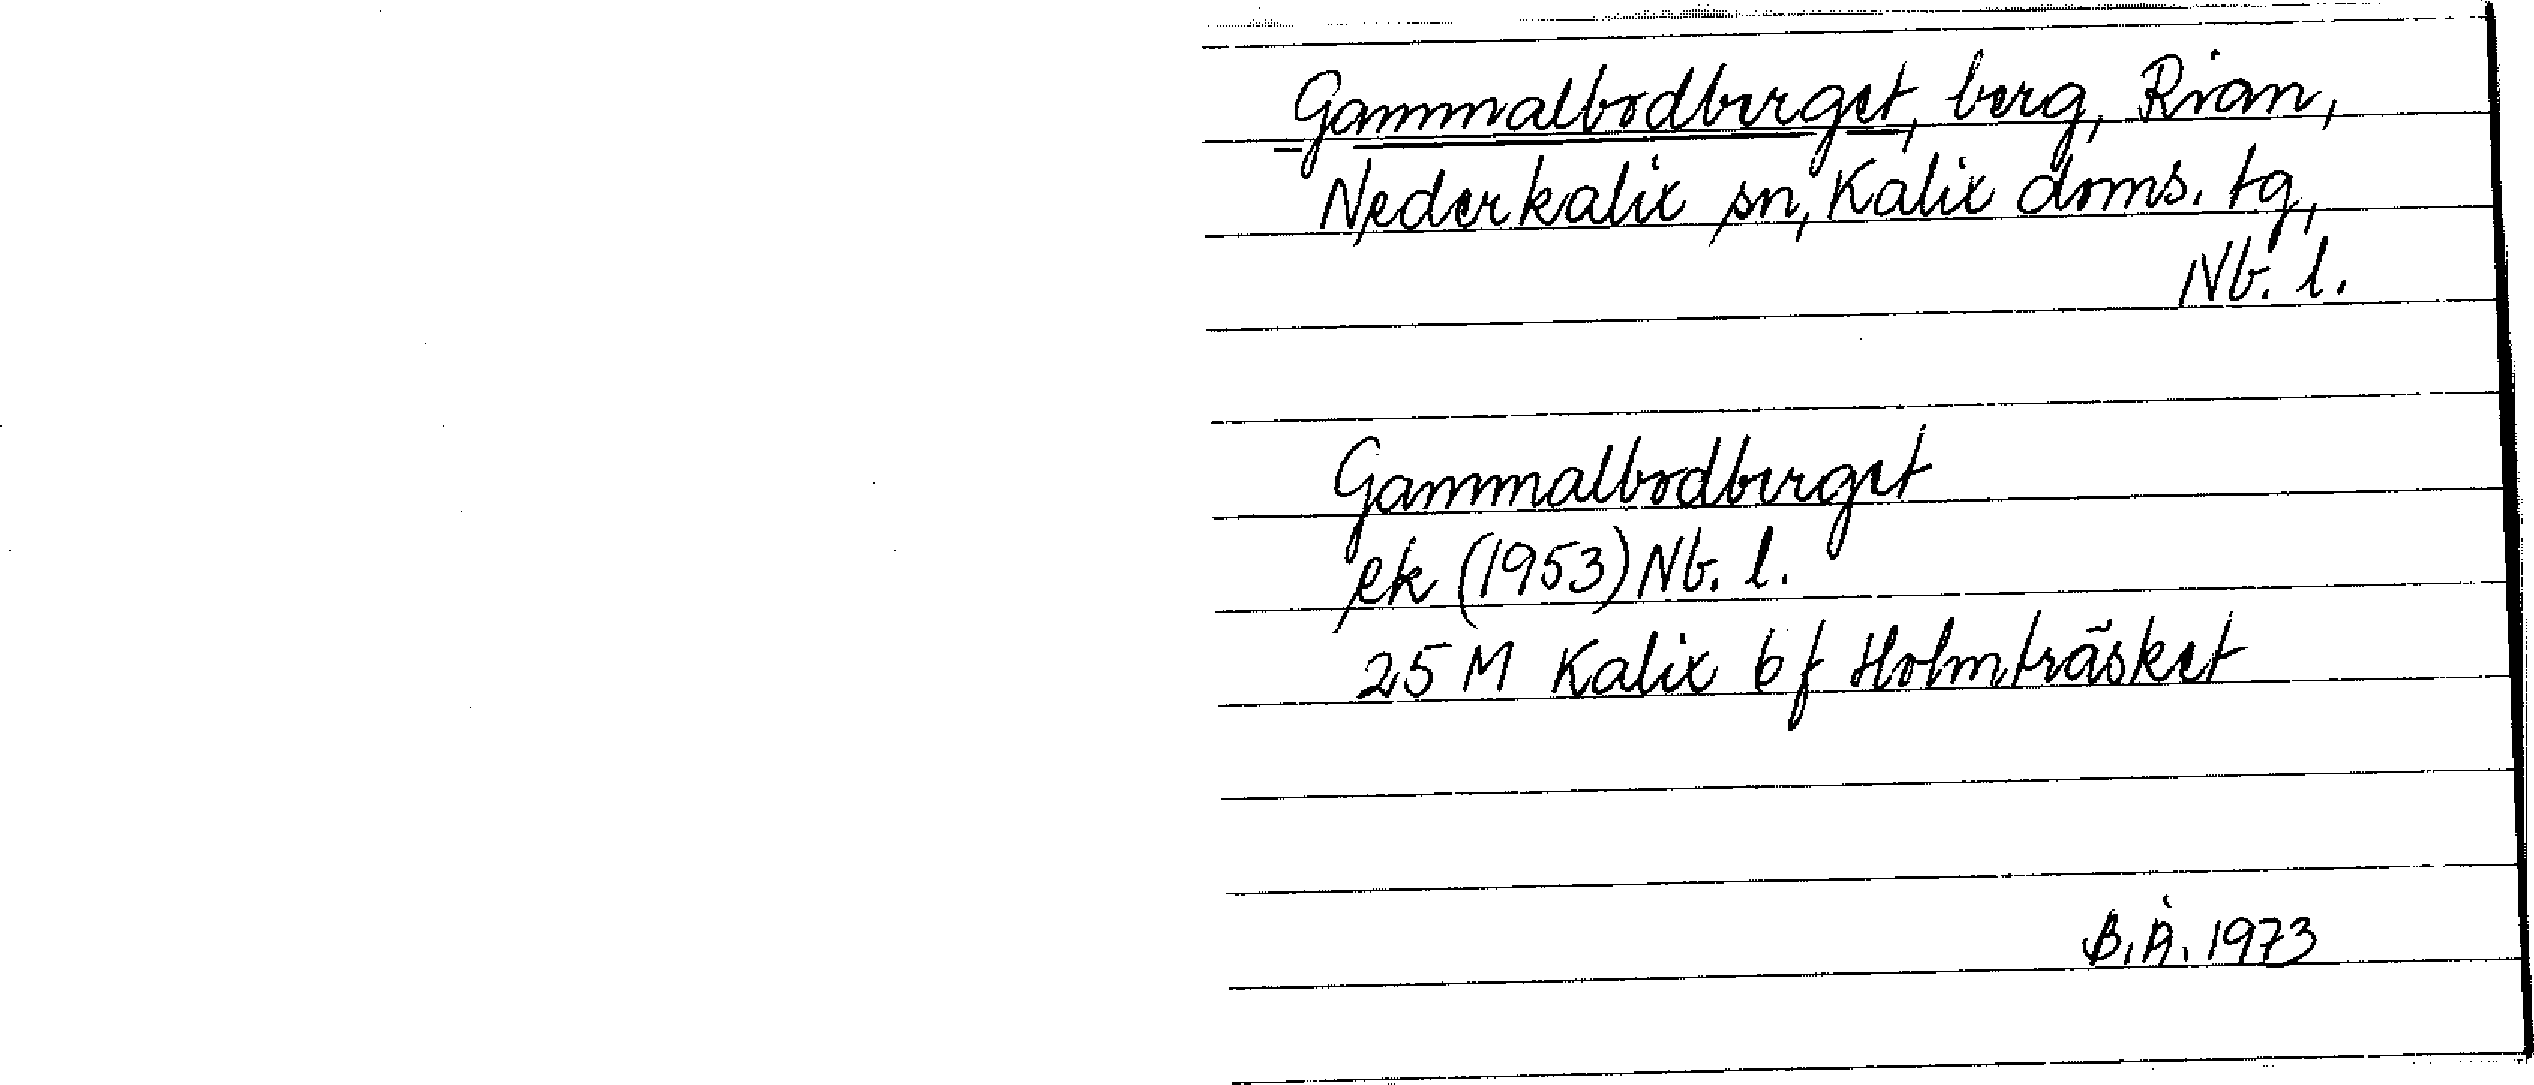 Gammalbodberget, berg, Rian,
Nederkalix sn, Kalix doms. tg,
Nb. l.
Gammalbodberget
ek (1953) Nb. l.
25 M Kalix 6 f Holmträsket
B.Å. 1973